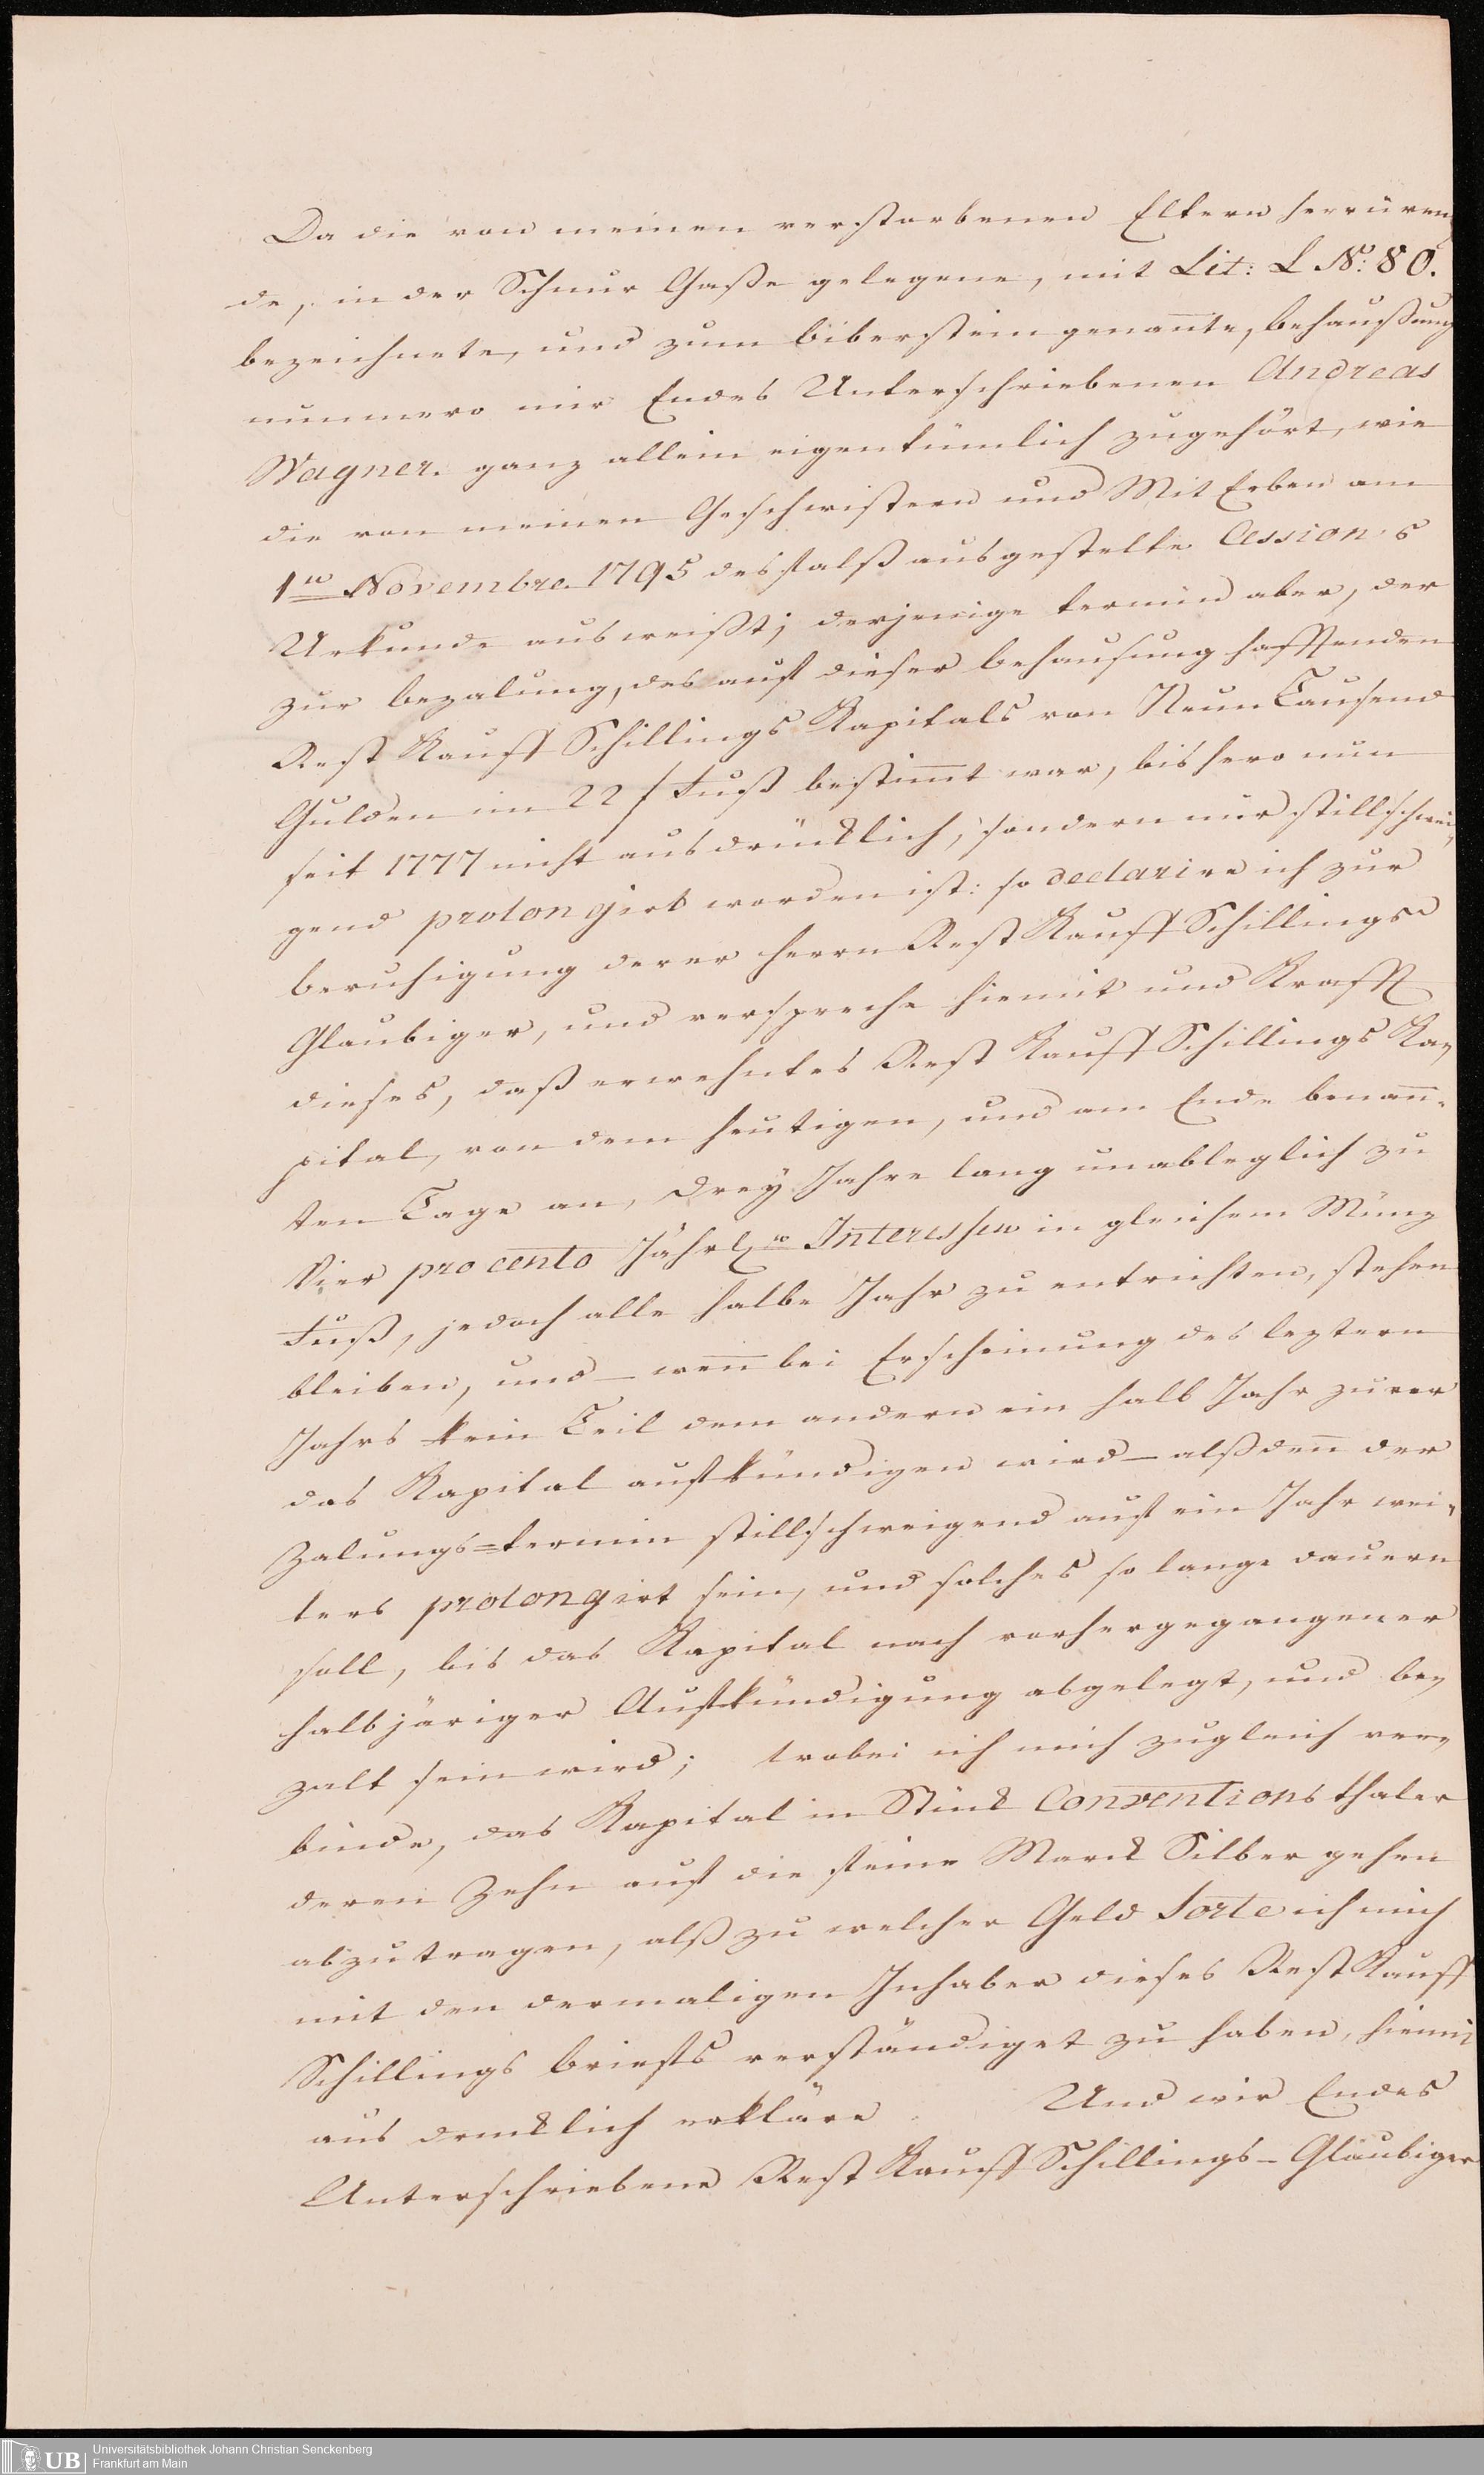 Da die von meinen verstorbenen Eltern herrüren,
de, in der Schnur Gaße gelegene, mit Lit: L No: 80.
bezeichnete, und zum biberstein genan̄te, behaußung
nunmero mir Endes Unterschriebenen Andreas
Wagner. ganz allein eigentümlich zugehört, wie
die von meinen Geschwistern und Mit Erben am
1ten Novembre 1795 desfalß ausgestelte Cession's
Urkunde ausweißt; derjenige termin aber, der
zur bezalung, des auf dieser behausung hafftenden
Rest Kauff Schillings Kapitals von Neun Tausend
Gulden im 22 f Fuß bestim̄t war, bishero nun
seit 1777 nicht ausdrücklich, sondern nur stillschwei,
gend prolongirt worden ist: so declarire ich zur
beruhigung derer Herrn Rest Kauff Schillings
Glaubiger, und verspreche hiemit und Krafft
dieses, daß erwehntes Rest Kauff Schillings Ka,
pital, von dem heutigen, und am Ende benan̄-
ten Tage an, Drey Jahre lang unableglich zu
Vier pro cento Jährl.en Interessen in gleichem Münz
Fuß, jedoch alle halbe Jahr zu entrichten, stehen
bleiben, und – wen̄ bei Erscheinung des leztern
Jahrs kein Teil dem andern ein halb Jahr zuvor
das Kapital aufkündigen wird – alßden̄ der
Zalungs=termin stillschweigend auf ein Jahr wei,
ters prolongirt sein, und solches so lange dauern
soll, bis das Kapital nach vorhergegangener
halbjäriger Aufkündigung abgelegt, und be,
zalt sein wird; wobei ich mich zugleich ver,
binde, das Kapital in Stück Conventions thaler
deren Zehn auf die feine Marck Silber gehen
abzutragen, alß zu welcher Geld Sorte ich mich
mit den dermaligen Inhaber dieses Rest Kauff
Schillings briefs verständiget zu haben, hiemit
ausdrücklich erkläre. Und wir Endes
Unterschriebene Rest Kauff Schillings-Gläubiger
UB Universitätsbibliothek Johann Christian Senckenberg
Frankfurt am Main